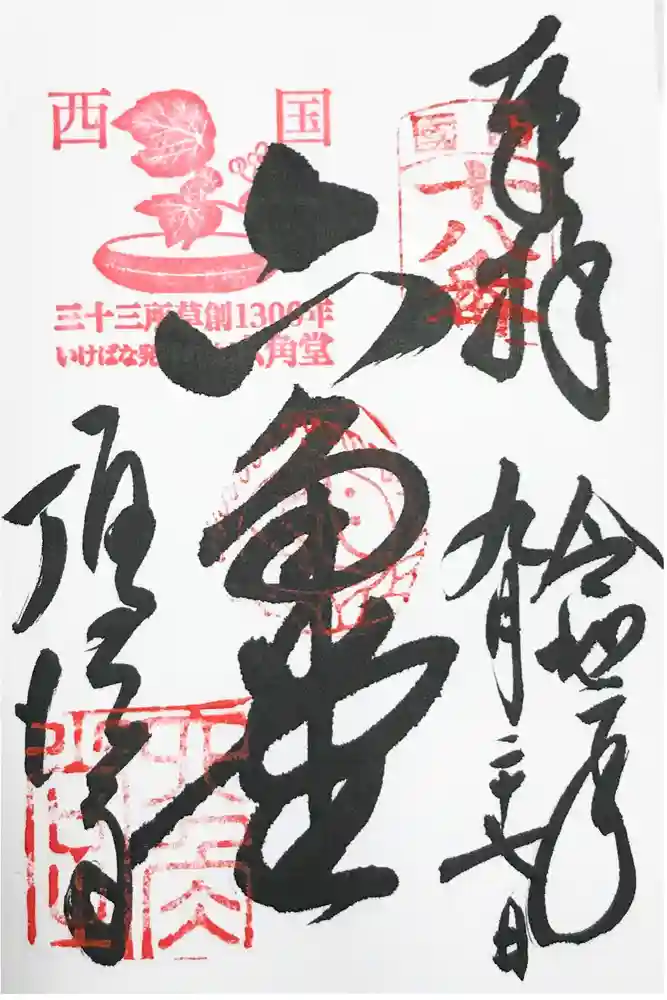 奉拝
令和二年
九月二十七日
西国
十八番
六角堂
西 国
三十三所草創1300年
いけばな発 六角堂
頂法寺